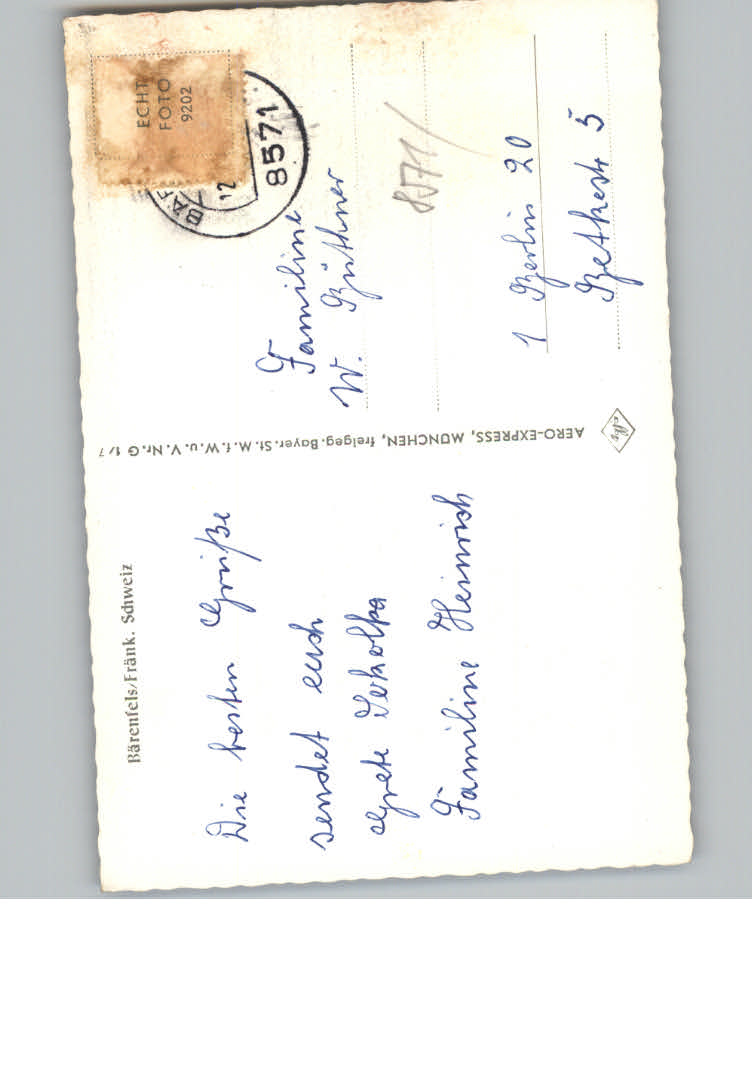 Bärenfels/Fränk. Schweiz
Die besten Grüße
sendet euch
Grete
Familine Heinrich
AERO-EXPRESS, MÜNCHEN, freigeg. Bayer. St. M. f. W. u. V. Nr. G 1/7
ECHT
FOTO
9202
12
8571
Familine
W. Büthner
8571/
1 Berlin 20
Betkestr 5